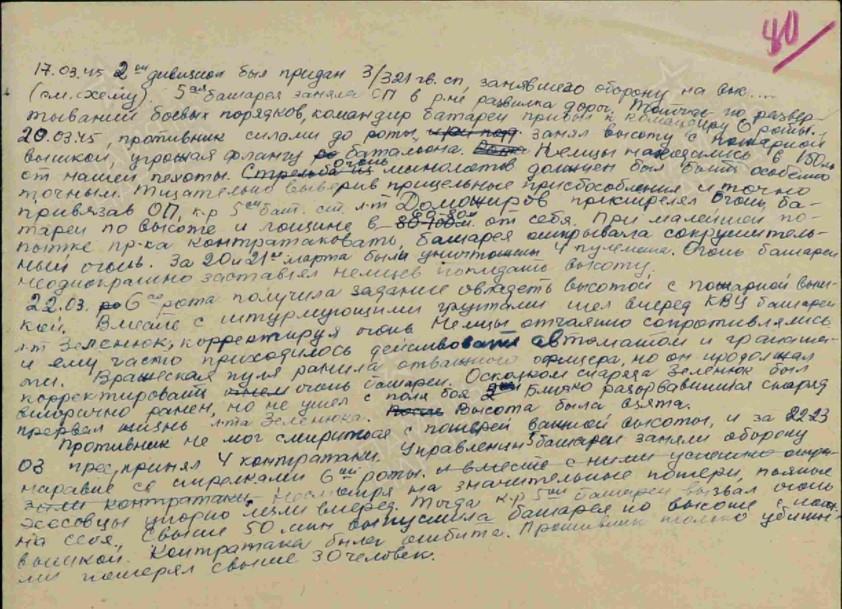 80
17.03.45 2ой дивизион был придан 3/321 гв. сп, занявшего оборону на
(см. схему). 5ая батарея заняла ОП в р-не развилка дорог. по развер-
тывании боевых порядков, командир батареи прибыл к командиру 6 роты.
20.03.45, противник силами до роты, занял высоту с пожарной
вышкой, угрожая флангу батальона. Немцы находились в 150м
от нашей пехоты. Стрельба из минометов должен был быть особенно
точным. Тщательно выверив прицельные приспособления и точно
привязав ОП, к-р 5ой бат. ст. л-т Доможиров пристрелял огонь ба-
тареи по высоте и лощине в от себя. При малейшей по-
пытке пр-ка контратаковать, батарея открывала сокрушитель-
ный огонь. За 20 и 21ое марта были уничтожены 4 пулемета. Огонь батареи
неоднократно заставлял немцев покидать высоту.
22.03. 6ая рота получила задание овладеть высотой с пожарной выш-
кой. Вместе с штурмующими группами шел вперед КВУ батареи
л-т Зеленюк, корректируя огонь. Немцы отчаянно сопротивлялись
и ему часто приходилось действовать автоматом и граната-
ми. Вражеская пуля ранила отважного офицера, но он продолжал
корректировать огонь батареи. Осколком снаряда Зеленюк был
вторично ранен, но не ушел с поля боя. Близко разорвавшийся снаряд
прервал жизнь л-та Зеленюка. Высота была взята.
Противник не мог смириться с потерей важной высоты, и за 22-23
03 предпринял 4 контратаки. Управление 5 батареи заняли оборону
наравне со стрелками 6ой роты. и вместе с ними успешно
эти контратаки. Несмотря на значительные потери, пьяные
эсэсовцы упорно лезли вперед. Тогда к-р 5ой батареи вызвал огонь
на себя. Свыше 50 мин выпустила батарея по высоте с пож.
вышкой. Контратака была отбита. Противник только убиты-
ми потерял свыше 30 человек.